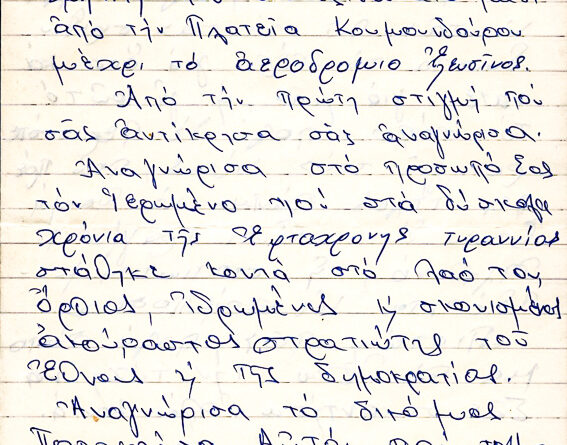 ἀπό τήν Πλατεῖα Κουμουνδούρου
μέχρι τό ἀεροδρόμιο Ἐλευσῖνος.
Ἀπό τήν πρώτη στιγμή πού
σᾶς ἀντίκρησα σᾶς ἀναγνώρισα.
Ἀναγνώρισα στό πρόσωπό Σας
τόν Ἱερωμένο πού στά δύσκολα
χρόνια τῆς ἑπτάχρονης τυραννίας
στάθηκε κοντά στό λαό του,
ὄρθιος, ἱδρωμένος ἤ σκονισμένος
ἀκούραστος στρατιώτης τοῦ
Ἔθνους ἤ τῆς δημοκρατίας.
Ἀναγνώρισα τό δικό μας